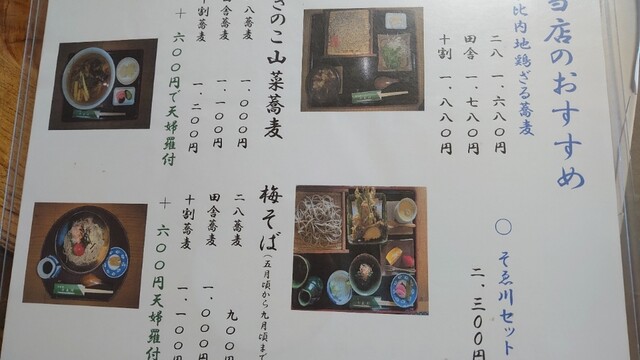 当店のおすすめ
比内地鶏ざる蕎麦
二八 一、六八〇円
田舎 一、七八〇円
十割 一、八八〇円
きのこ山菜蕎麦
二八蕎麦 一、〇〇〇円
田舎蕎麦 一、一〇〇円
十割蕎麦 一、二〇〇円
＋六〇〇円で天婦羅付
〇 そゑ川セット
二、三〇〇円
梅そば（五月頃から九月頃まで
二八蕎麦 九〇〇
田舎蕎麦 一、〇〇〇円
十割蕎麦 一、一〇〇円
＋六〇〇円天婦羅付